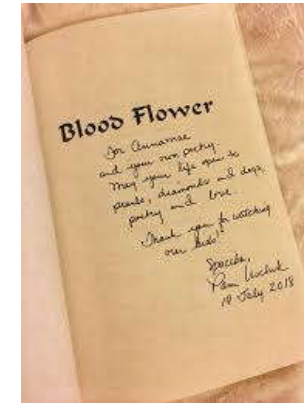 Blood Flower
For Annamae
and your own poetry.
May your life open to
pearls, diamonds and dogs,
poetry and love.
Thank you for watching
our kids!
Pam Uschuk
18 July 2018